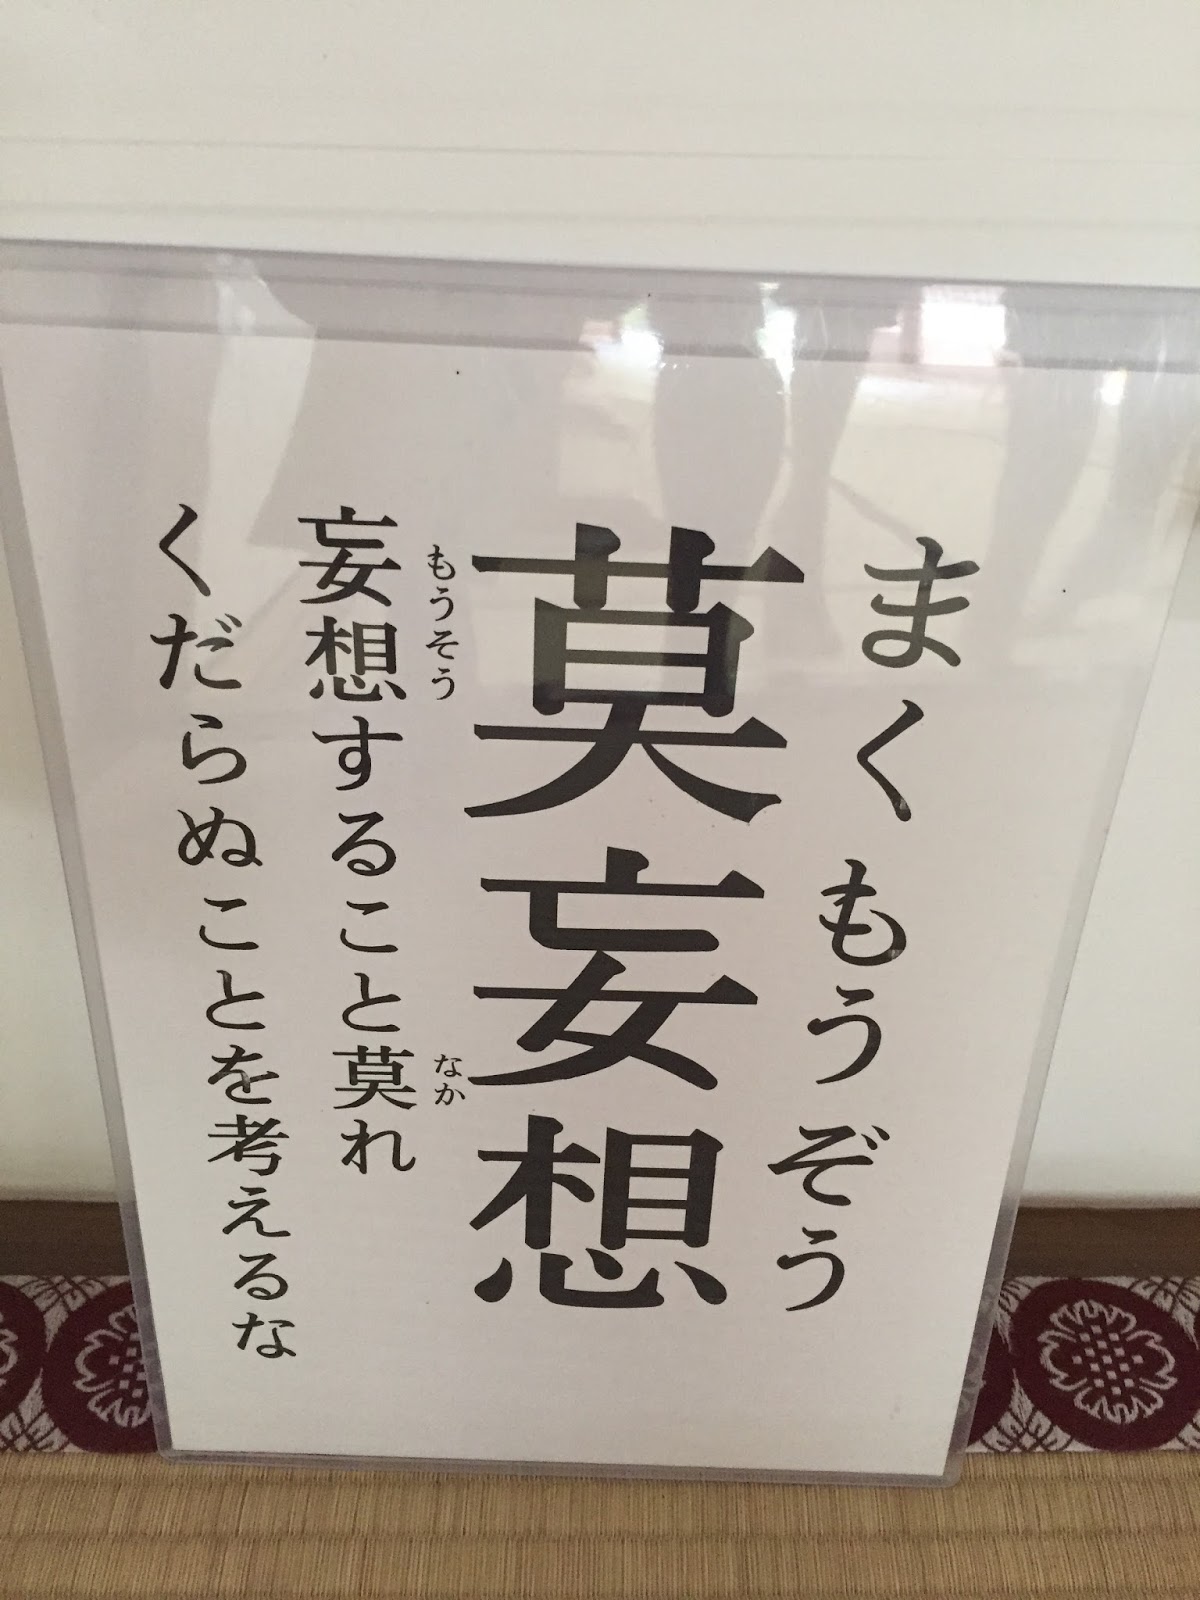 まくもうぞう
莫妄想
もうそう なか
妄想すること莫れ
くだらぬことを考えるな